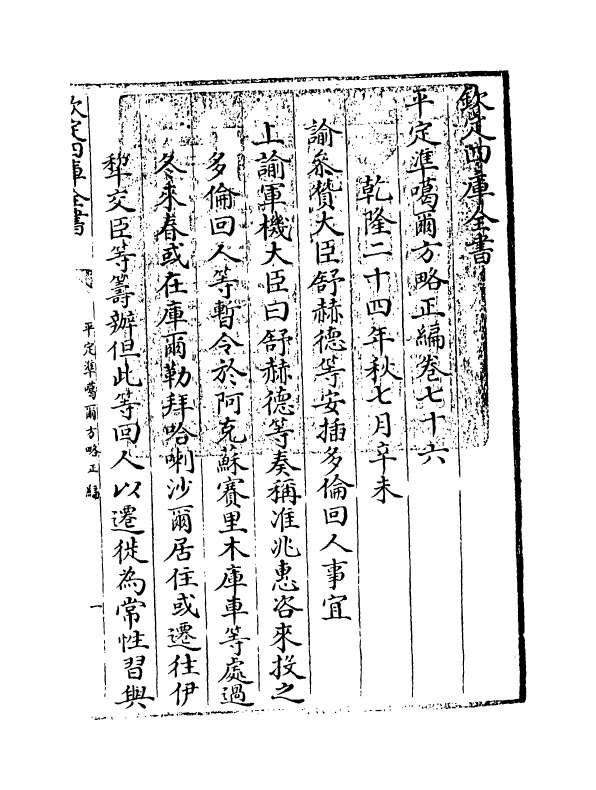 欽定四庫全書
平定準噶爾方略正編卷七十六
乾隆二十四年秋七月辛未
諭叅贊大臣舒赫德等安插多倫回人事宜
上諭軍機大臣曰舒赫德等奏稱准兆惠咨來投之
多倫回人等暫令於阿克蘇賽里木庫車等處過
冬來春或在庫爾勒拜哈喇沙爾居住或遷往伊
犂交臣等籌辦但此等回人以遷徙為常性習與
欽定四庫全書
平定準噶爾方略正編
一